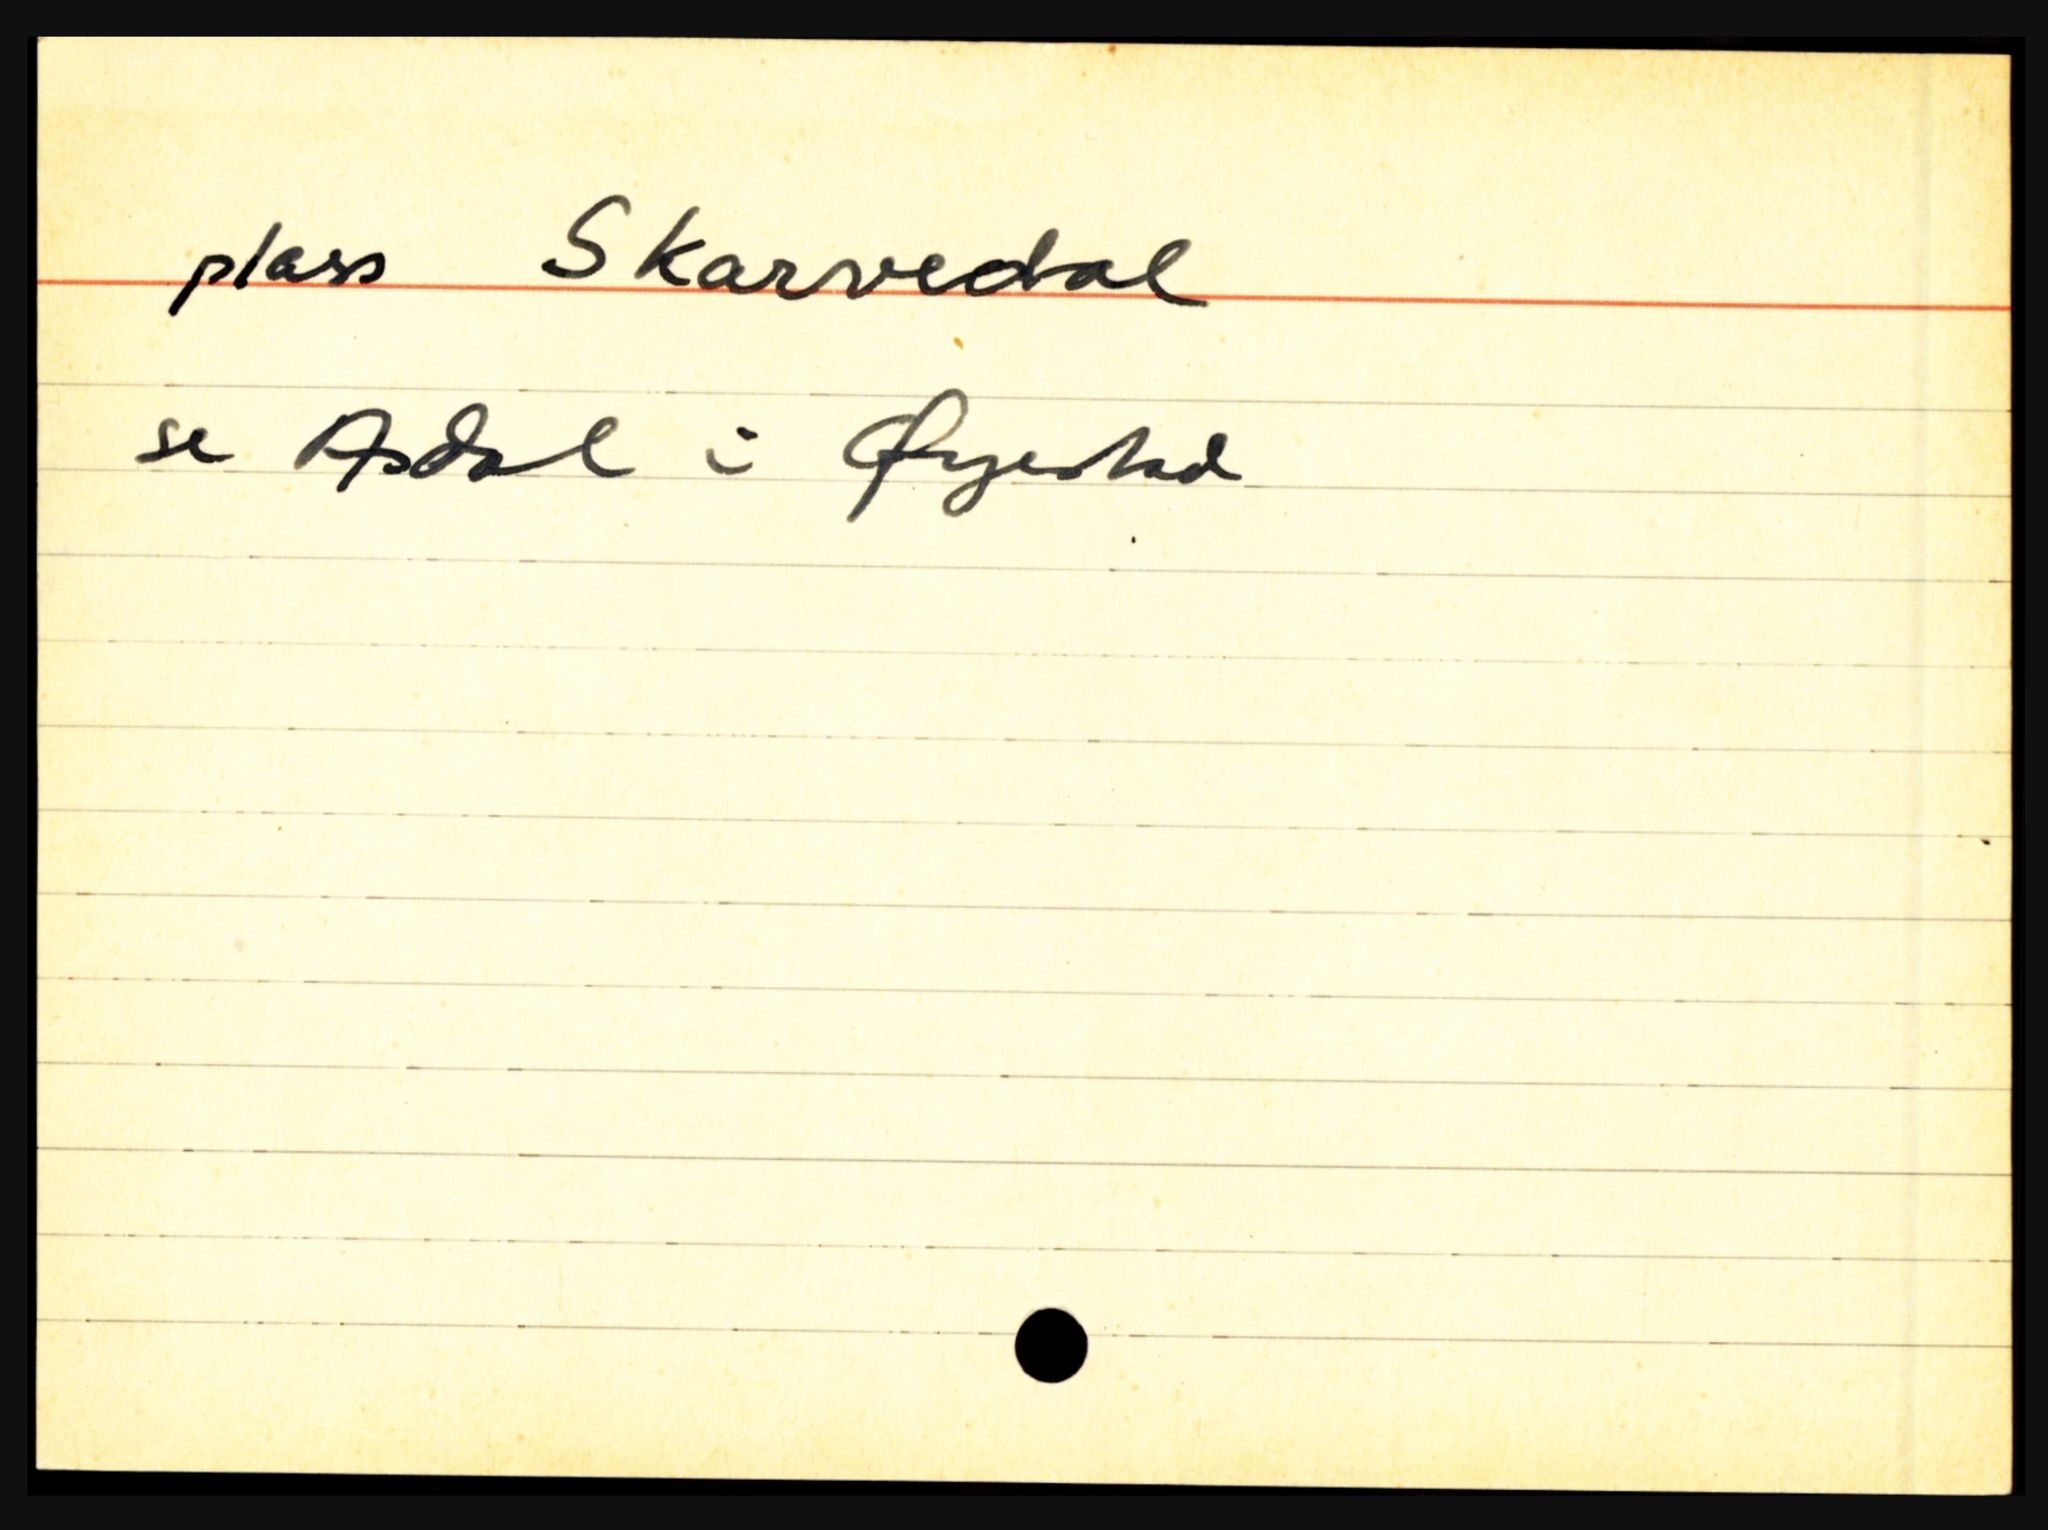 plass Skarvedal
se Asdal i Øyestad